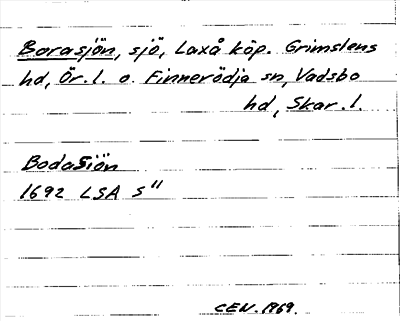 Borasjön, sjö, Laxå köp. Grimstens
hd, Ör. l. o. Finnerödja sn, Vadsbo
hd, Skar. l.
Bodasiön
1692 LSA S"
CEN. 1969.